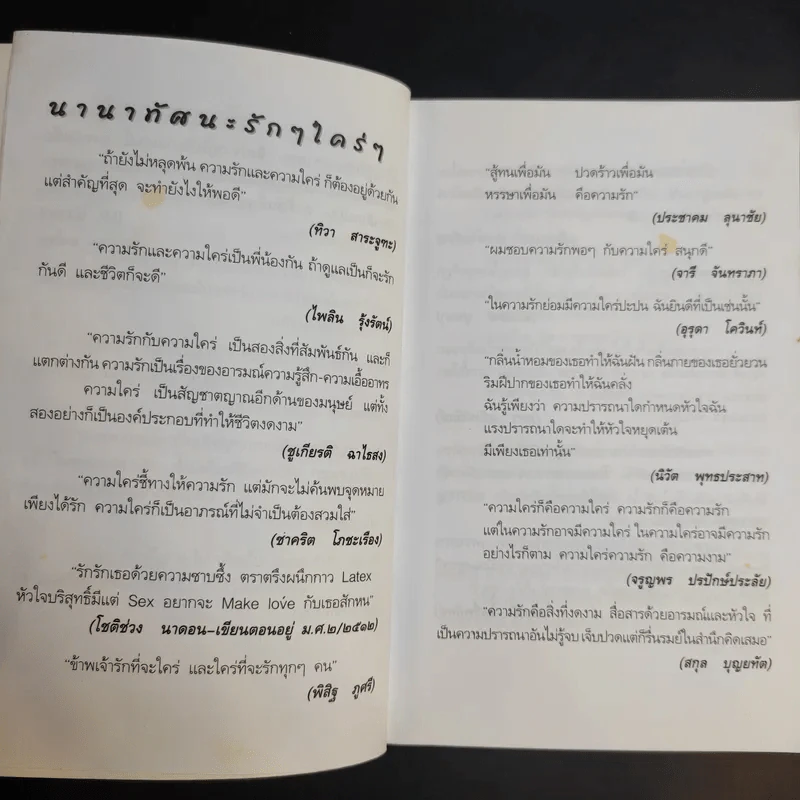 นานาทัศนะรักๆใคร่ๆ
“ถ้ายังไม่หลุดพ้น ความรักและความใคร่ ก็ต้องอยู่ด้วยกัน
แต่สำคัญที่สุด จะทำยังไงให้พอดี”
(ทิวา สาระจูฑะ)
“ความรักและความใคร่เป็นพี่น้องกัน ถ้าดูแลเป็นก็จะรัก
กันดี และชีวิตก็จะดี”
(ไพลิน รุ้งรัตน์)
“ความรักกับความใคร่ เป็นสองสิ่งที่สัมพันธ์กัน และก็
แตกต่างกัน ความรักเป็นเรื่องของอารมณ์ความรู้สึก-ความเอื้ออาทร
ความใคร่ เป็นสัญชาตญาณอีกด้านของมนุษย์ แต่ทั้ง
สองอย่างก็เป็นองค์ประกอบที่ทำให้ชีวิตงดงาม”
(ชูเกียรติ ฉาไธสง)
“ความใคร่ชี้ทางให้ความรัก แต่มักจะไม่ค้นพบจุดหมาย
เพียงได้รัก ความใคร่ก็เป็นอาภรณ์ที่ไม่จำเป็นต้องสวมใส่”
(ชาคริต โภชะเรือง)
“รักรักเธอด้วยความซาบซึ้ง ตราตรึงผนึกกาว Latex
หัวใจบริสุทธิ์มีแต่ Sex อยากจะ Make love กับเธอสักหน”
(โชติช่วง นาดอน-เขียนตอนอยู่ ม.ศ.๒/๒๕๑๒)
“ข้าพเจ้ารักที่จะใคร่ และใคร่ที่จะรักทุกๆ คน”
(พิสิฐ ภูศรี)
“สู้ทนเพื่อมัน ปวดร้าวเพื่อมัน
หรรษาเพื่อมัน คือความรัก”
(ประชาคม ลุนาชัย)
“ผมชอบความรักพอๆ กับความใคร่ สนุกดี”
(จารี จันทราภา)
“ในความรักย่อมมีความใคร่ปะปน ฉันยินดีที่เป็นเช่นนั้น”
(อุรุดา โควินท์)
“กลิ่นน้ำหอมของเธอทำให้ฉันฝัน กลิ่นกายของเธอยั่วยวน
ริมฝีปากของเธอทำให้ฉันคลั่ง
ฉันรู้เพียงว่า ความปรารถนาใดกำหนดหัวใจฉัน
แรงปรารถนาใดจะทำให้หัวใจหยุดเต้น
มีเพียงเธอเท่านั้น”
(นิวัต พุทธประสาท)
“ความใคร่ก็คือความใคร่ ความรักก็คือความรัก
แต่ในความรักอาจมีความใคร่ ในความใคร่อาจมีความรัก
อย่างไรก็ตาม ความใคร่ความรัก คือความงาม”
(จรูญพร ปรปักษ์ประลัย)
“ความรักคือสิ่งที่งดงาม สื่อสารด้วยอารมณ์และหัวใจ ที่
เป็นความปรารถนาอันไม่รู้จบ เจ็บปวดแต่ก็รื่นรมย์ในสำนึกคิดเสมอ”
(สกุล บุณยทัต)